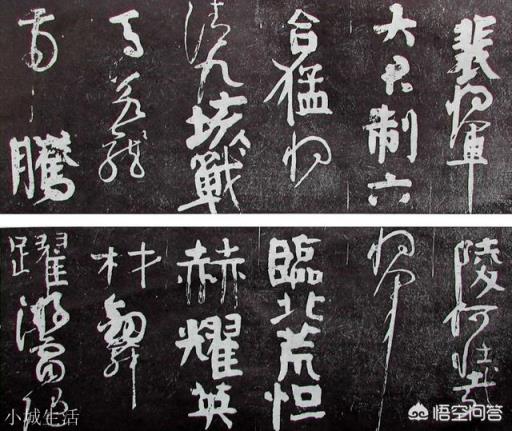 裴將軍
大君制六
合猛將
清九垓戰
馬若龍
虎騰
陵何壯哉
將軍
臨北荒恒
赫耀英
材劍舞
躍游電
小城生活
悟空问答